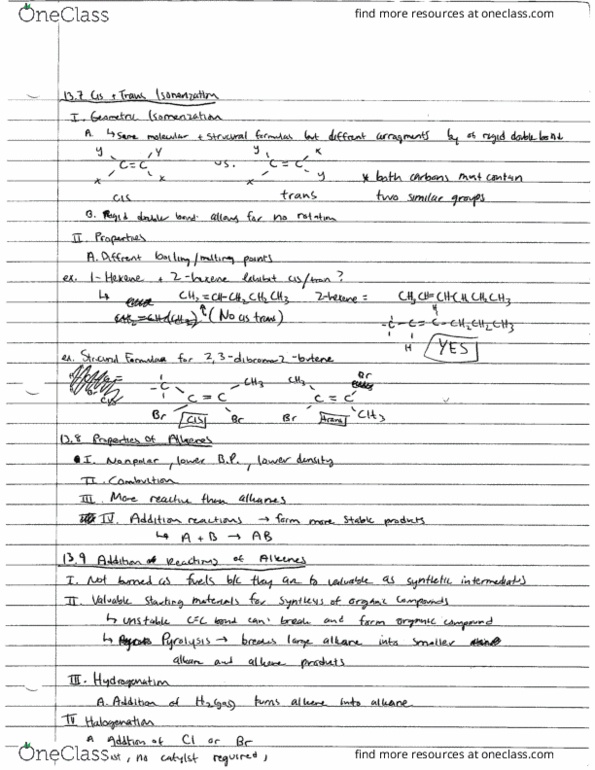 OneClass
find more resources at oneclass.com
13.7 Cis + Trans Isomerization
I. Geometric Isomerization
A. ↳ Same molecular + structural formulas but diffrent arragments by of rigid double bond
y y y x
C=C vs. C=C * both carbons must contain
x x x y
cis trans two similar groups
B. Rigid double bond allows for no rotation
II. Properties
A. Diffrent boiling/melting points
ex. 1-Hexene + 2-hexene Exhibit cis/tran?
↳ CH2=CH-CH2CH2CH3 2-hexene = CH3CH=CHCH CH2CH3
(No cis trans) H
-C-C=C-CH2CH2CH3
H YES
ex. Strucural Formulas for 2,3-dibromo-2-butene
-C- CH3 CH3 Br
C=C C=C
Br cis Br Br trans CH3
13.8 Properties of Alkenes
I. Nonpolar, lower B.P., lower density
II. Combustion
III. More reactive than alkanes
IV. Addition reactions → form more stable products
↳ A + B → AB
13.9 Addition Reactions of Alkenes
I. Not burned as fuels b/c they are to valuable as synthetic intermediates
II. Valuable starting materials for synthesys of organic compounds
↳ unstable C=C bond can break and form organic compound
↳ Pyrolysis → breaks large alkane into smaller
alkane and alkene products
III. Hydrogenation
A. Addition of H2(gas) turns alkene into alkane
IV Halogenation
A Addtion of Cl or Br
, no catylst required,
OneClass
find more resources at oneclass.com